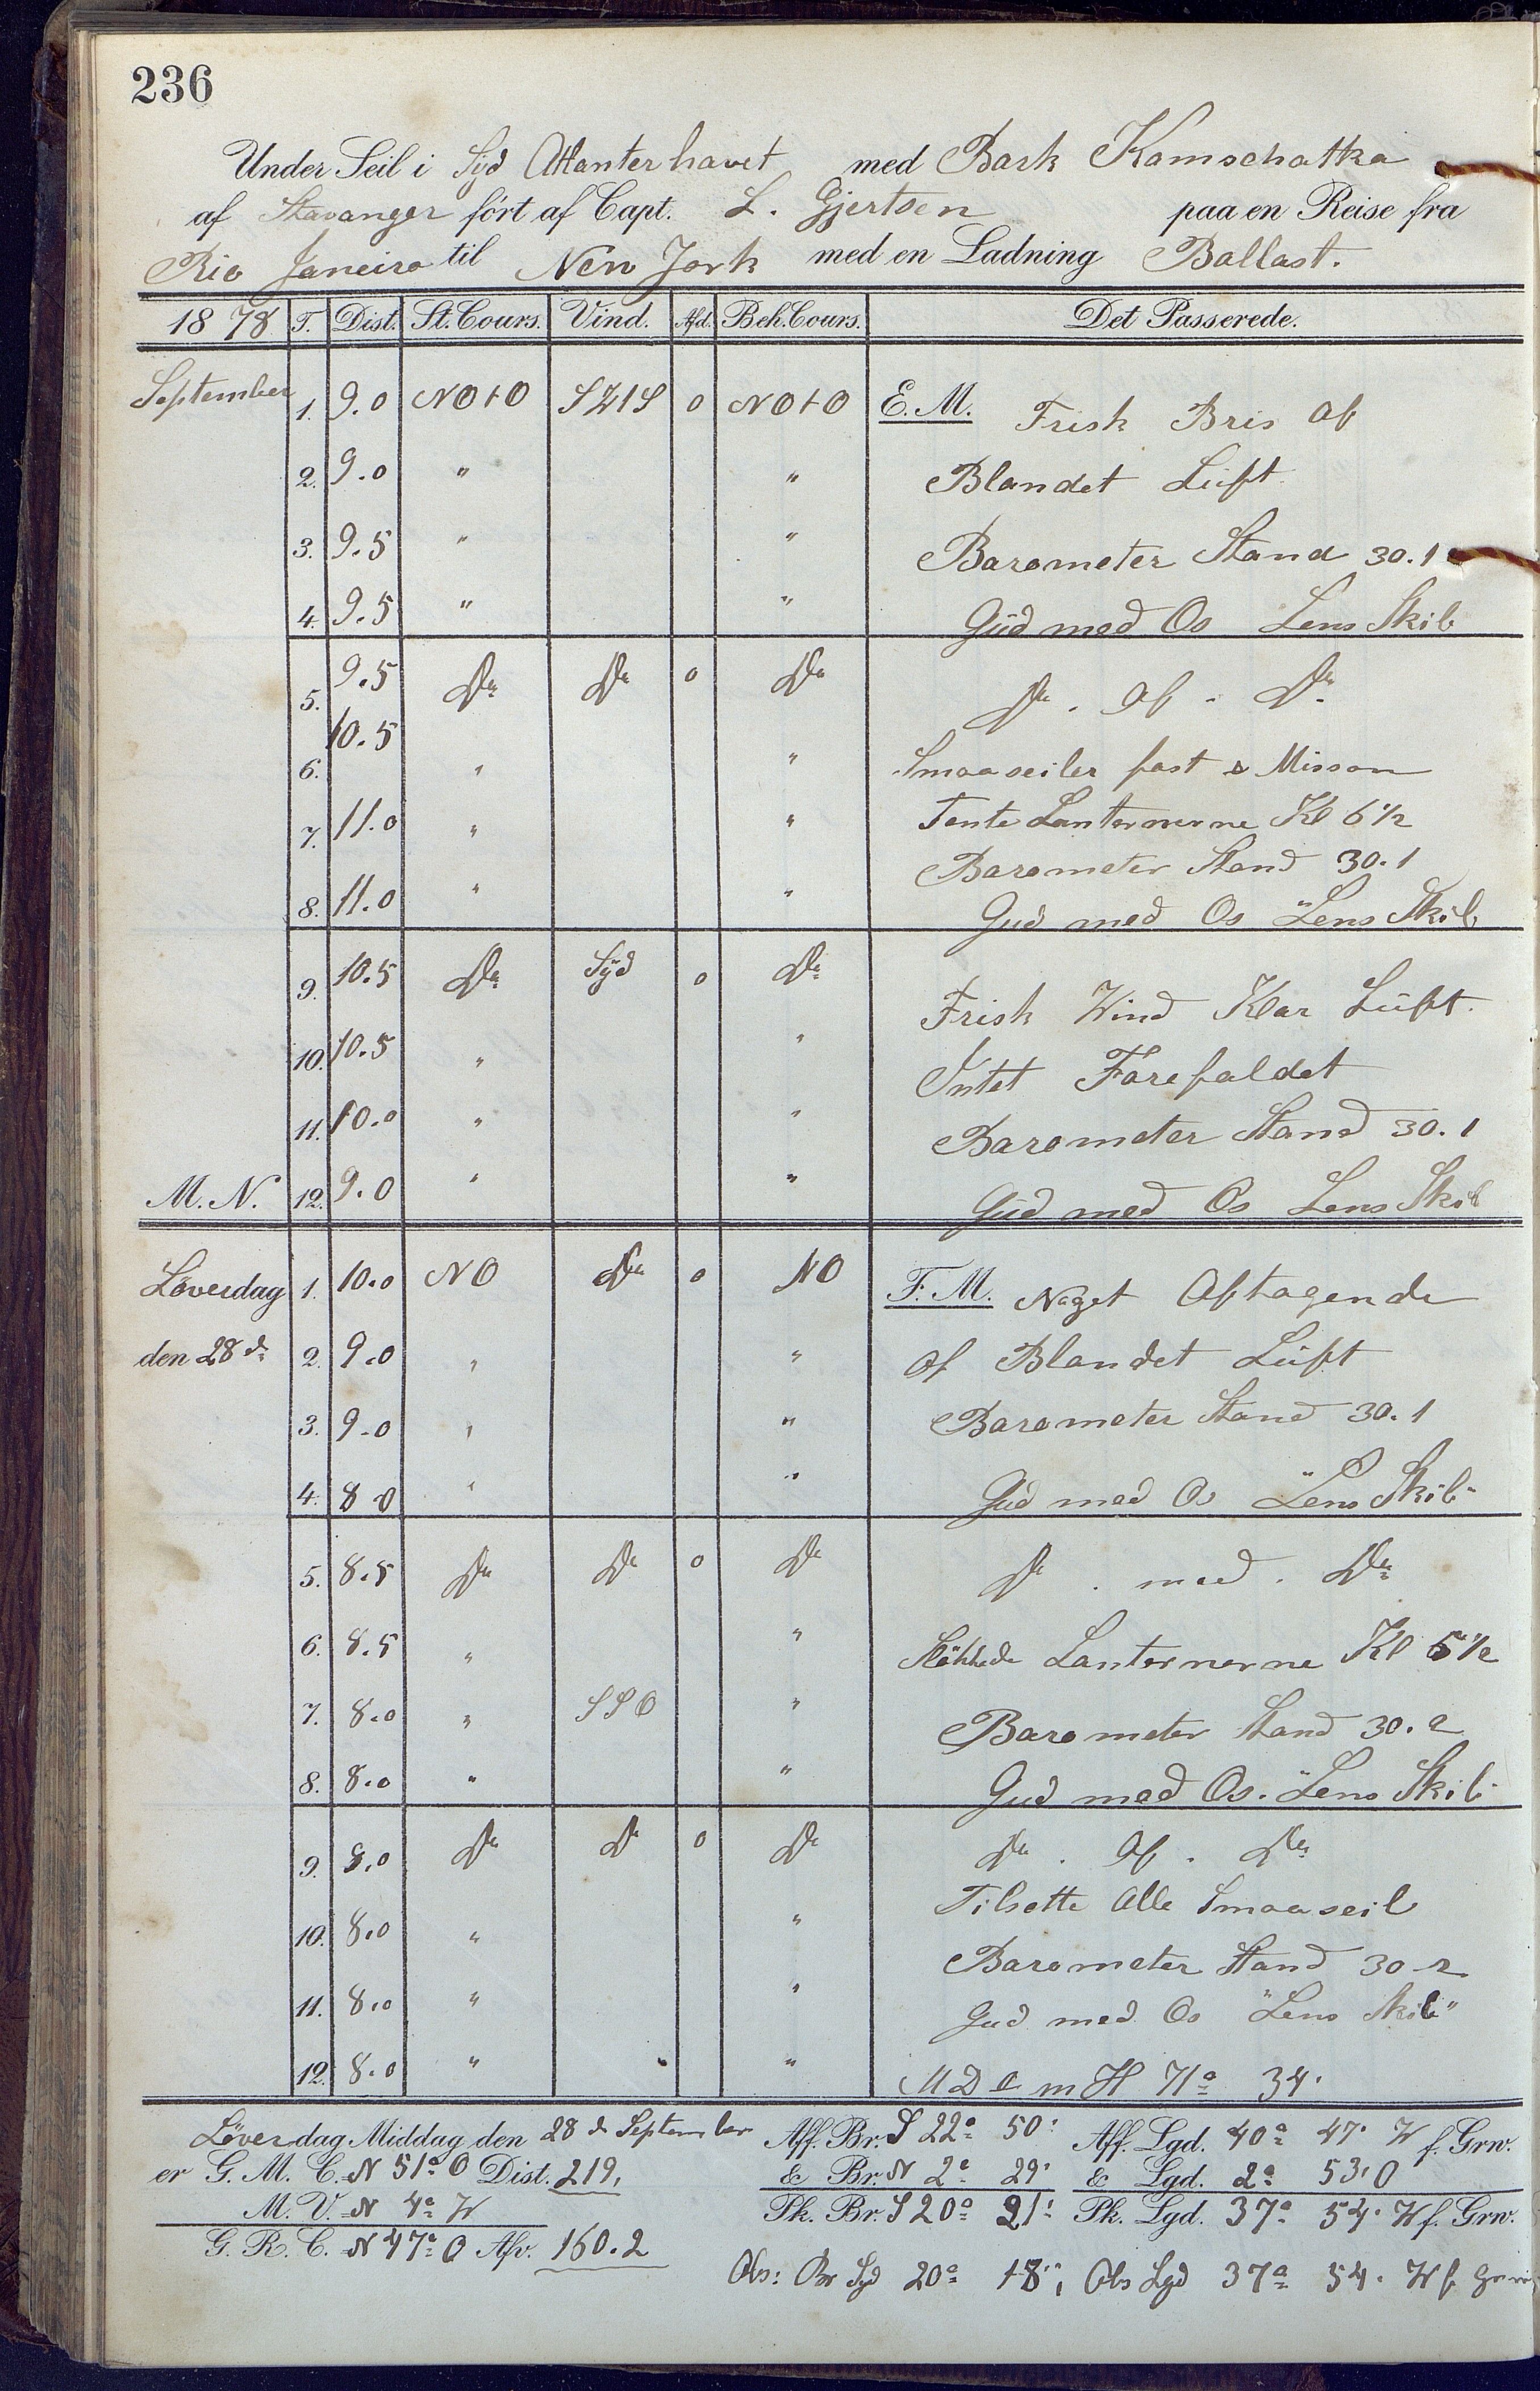 236
Under Seil i Syd Atlanterhavet med Bark Kamschatka
af Stavanger ført af Capt. L. Gjertsen paa en Reise fra
Rio Janeiro til New York med en Ladning Ballast.
1878 T. Dist. St. Cours. Vind. Afd. Beh. Cours. Det Passerede.
September 1. 9.0 NOtO 0 NOtO E.M. Frisk Bris Of
2. 9.0 " " Blandet Luft
3. 9.5 " " Barometer Stand 30.1
4. 9.5 " " Gud med Os Lens Skib
5. 9.5 Do Do 0 Do Do . Of . Do
6. 10.5 " " Smaaseiler fast & Missan
7. 11.0 " " Tente Lanternerne Kl 6 1/2
Barometer Stand 30.1
8. 11.0 " " Gud med Os "Lens Skib
9. 10.5 Do Syd 0 Do Frisk Wind Klar Luft.
10. 10.5 " " Intet Forefaldet
11. 10.0 " " Barometer Stand 30.1
M.N. 12. 9.0 " " Gud med Os Lens Skib
Löverdag 1. 10.0 NO Do 0 NO F.M. Noget Aftagende
den 28 d. 2. 9.0 " " Of Blandet Luft
3. 9.0 " " Barometer Stand 30.1
4. 8.0 " " Gud med Os "Lens Skib"
5. 8.5 Do Do 0 Do Do . med . Do
6. 8.5 " " Lanternerne Kl 5 1/2
7. 8.0 " SSO " Barometer Stand 30.2
8. 8.0 " " Gud med Os. "Lens Skib"
9. 8.0 Do Do 0 Do Do . Of . Do
Tilsatte Alle Smaaseil
10. 8.0 " " Barometer Stand 30.2
11. 8.0 " " Gud med Os "Lens Skib"
12. 8.0 " " M D m H 71° 34'
Löverdag Middag den 28 d September Aff. Br. S 22° 50' Aff. Lgd. 40° 47' W f. Grw.
er G. M. C. N 51° O Dist. 219, & Br. N 2° 29' & Lgd. 2° 53' O
M. V. N 4° W Pk. Br. S 20° 21' Pk. Lgd. 37° 54' W f. Grw.
G. R. C. N 47° O Afv. 160.2
Obs: Br Syd 20° 18', Obs Lgd 37° 54' W f.